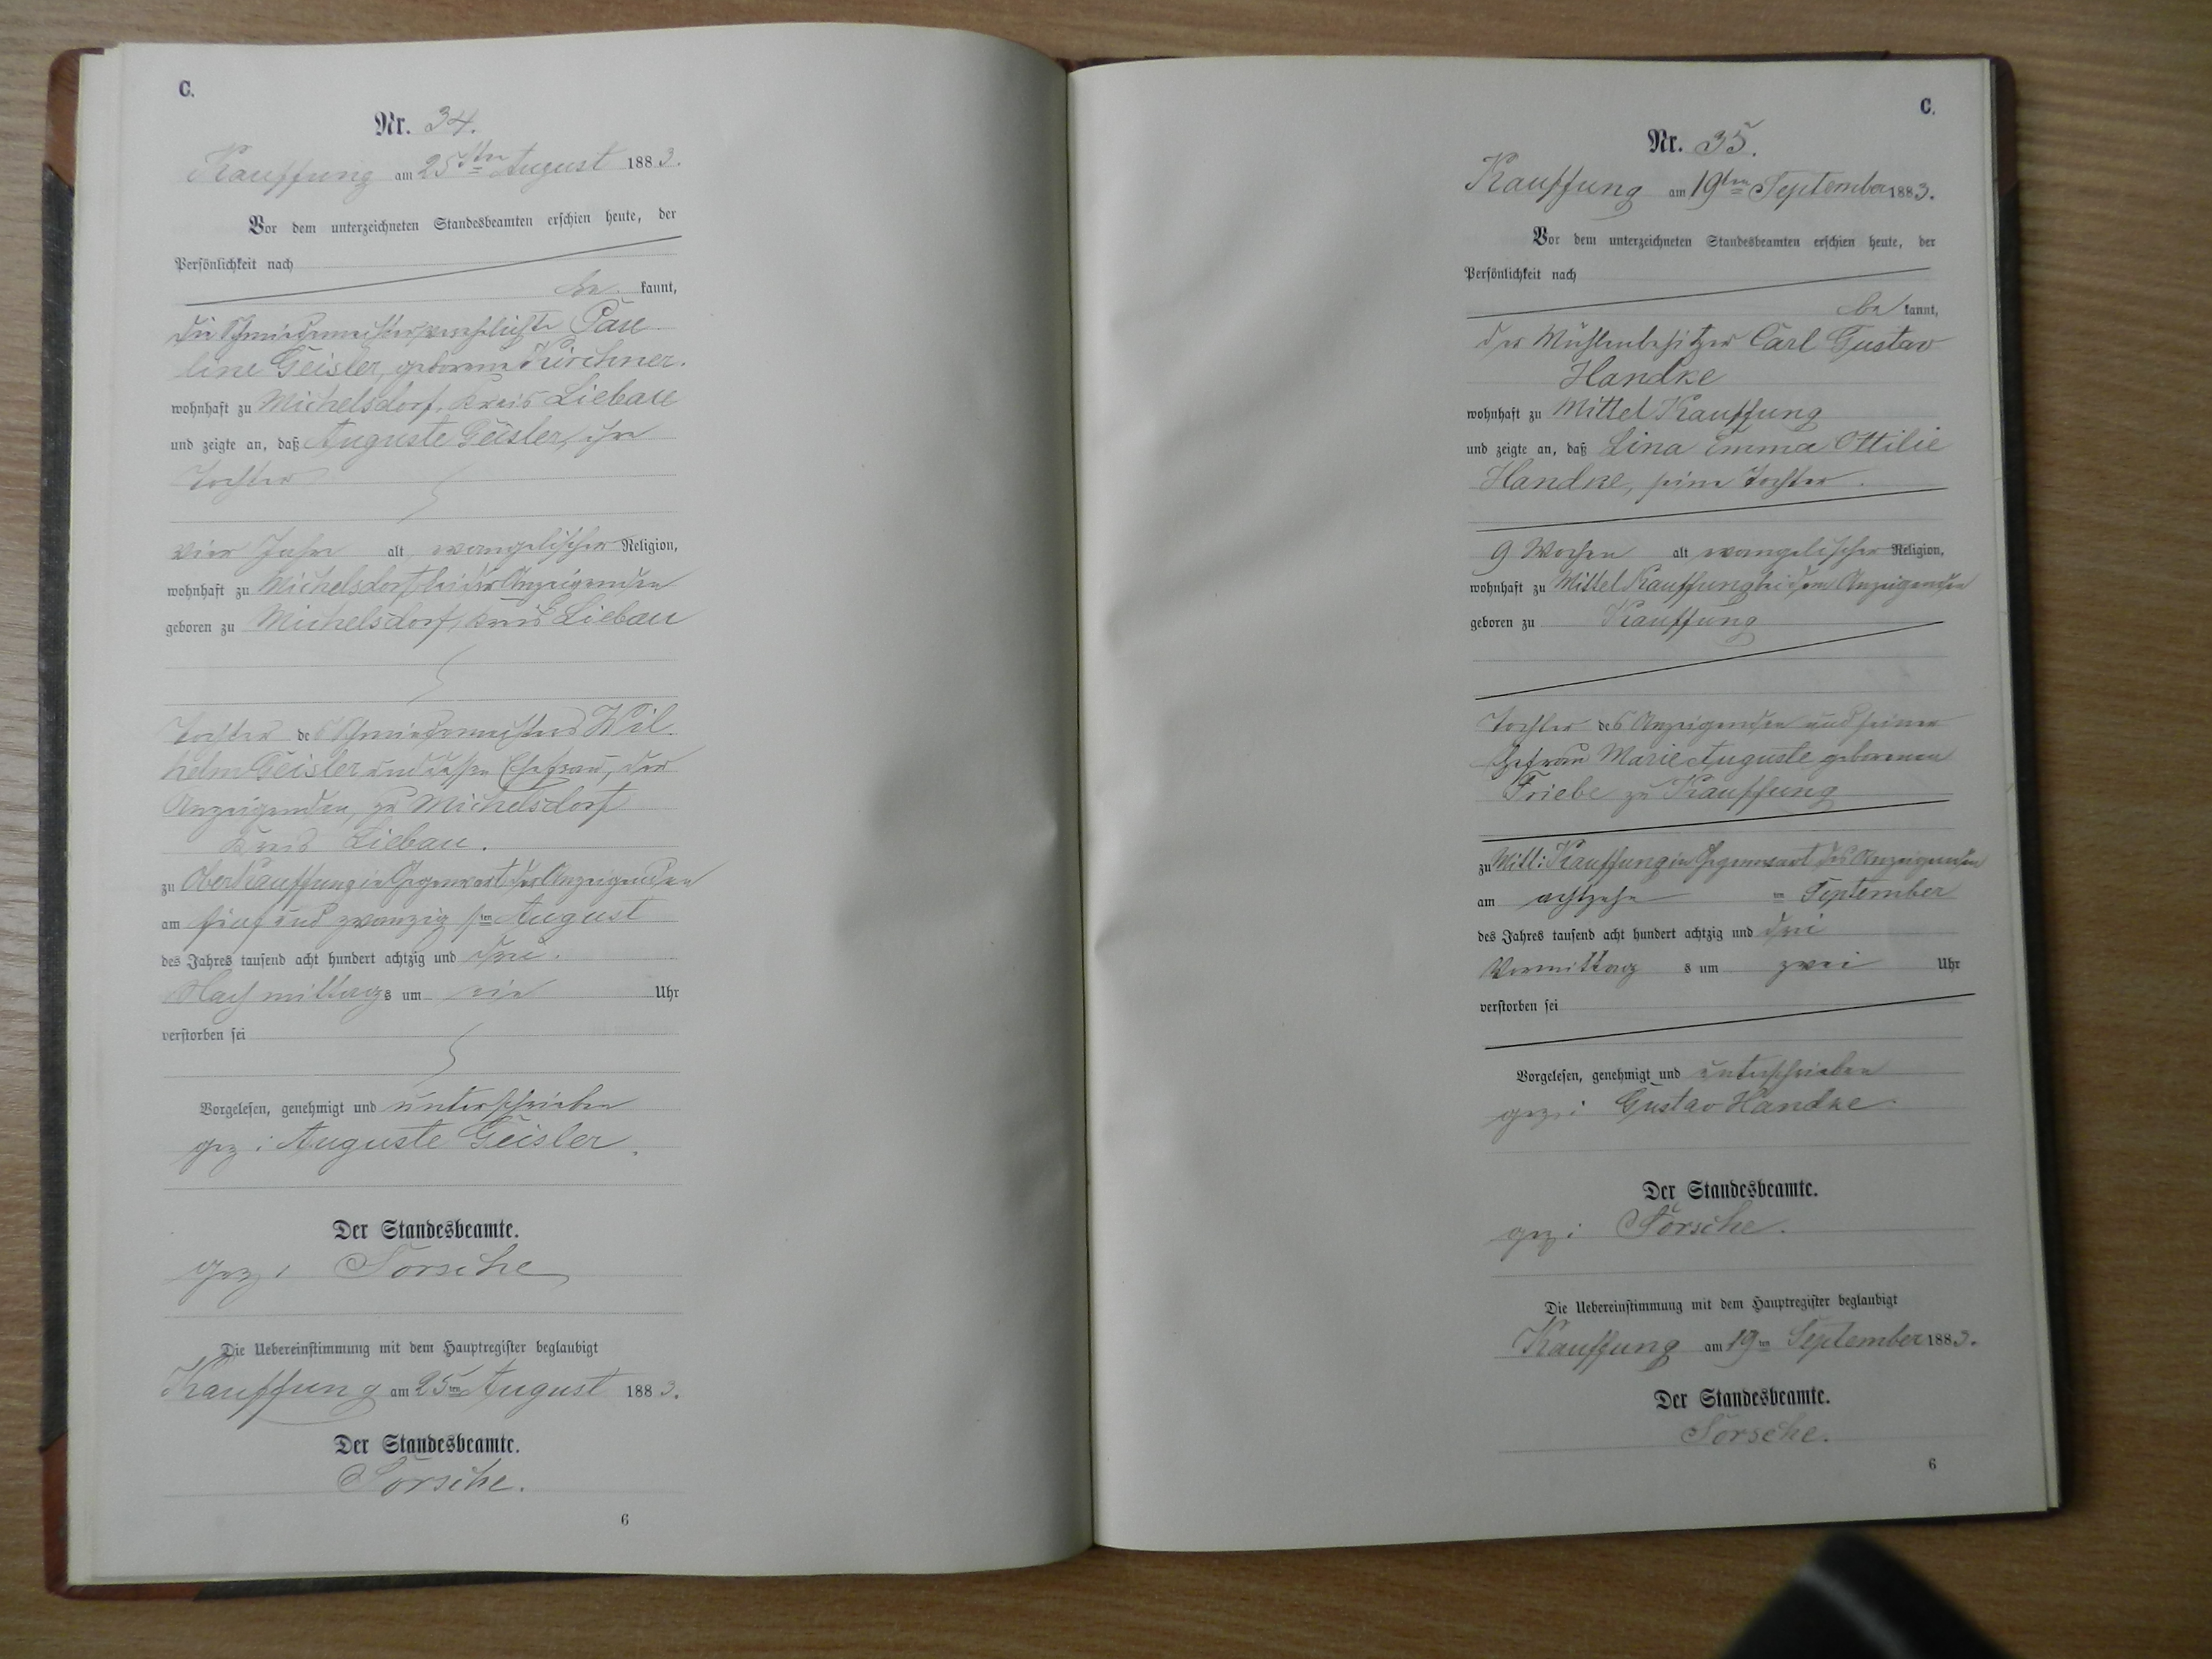 C.
Nr. 34.
Kauffung am 25sten August 1883.
Vor dem unterzeichneten Standesbeamten erschien heute, der
Persönlichkeit nach
be kannt,
die Schmiedemeister verehelichte Pau
line Geisler, geborene Kirchner.
wohnhaft zu Michelsdorf, Kreis Liebau
und zeigte an, daß Auguste Geisler, ihre
Tochter
vier Jahre alt, evangelischer Religion,
wohnhaft zu Michelsdorf bei der Anzeigenden
geboren zu Michelsdorf, Kreis Liebau
Tochter des Schmiedemeisters Wil
helm Geisler und dessen Ehefrau, der
Anzeigenden, zu Michelsdorf
Kreis Liebau.
zu Ober Kauffung in Gegenwart der Anzeigenden
am fünf und zwanzigsten August
des Jahres tausend acht hundert achtzig und drei.
Nachmittags um ein Uhr
verstorben sei
Vorgelesen, genehmigt und unterschrieben
gez: Auguste Geisler.
Der Standesbeamte.
gez: Torsche
Die Uebereinstimmung mit dem Hauptregister beglaubigt
Kauffung am 25ten August 1883.
Der Standesbeamte.
Torsche.
6
C.
Nr. 35.
Kauffung am 19ten September 1883.
Vor dem unterzeichneten Standesbeamten erschien heute, der
Persönlichkeit nach
be kannt,
der Mühlenbesitzer Carl Gustav
Handke
wohnhaft zu Mittel Kauffung
und zeigte an, daß Lina Emma Ottilie
Handke, seine Tochter.
9 Wochen alt evangelischer Religion,
wohnhaft zu Mittel Kauffung bei dem Anzeigenden
geboren zu Kauffung
Tochter des Anzeigenden und seiner
Ehefrau Marie Auguste geborenen
Friebe zu Kauffung
zu Mittl: Kauffung in Gegenwart des Anzeigenden
am achtzehn ten September
des Jahres tausend acht hundert achtzig und drei
Vormittag s um zwei Uhr
verstorben sei
Vorgelesen, genehmigt und unterschrieben
gez: Gustav Handke.
Der Standesbeamte.
gez: Torsche.
Die Uebereinstimmung mit dem Hauptregister beglaubigt
Kauffung am 19ten September 1883.
Der Standesbeamte.
Torsche.
6